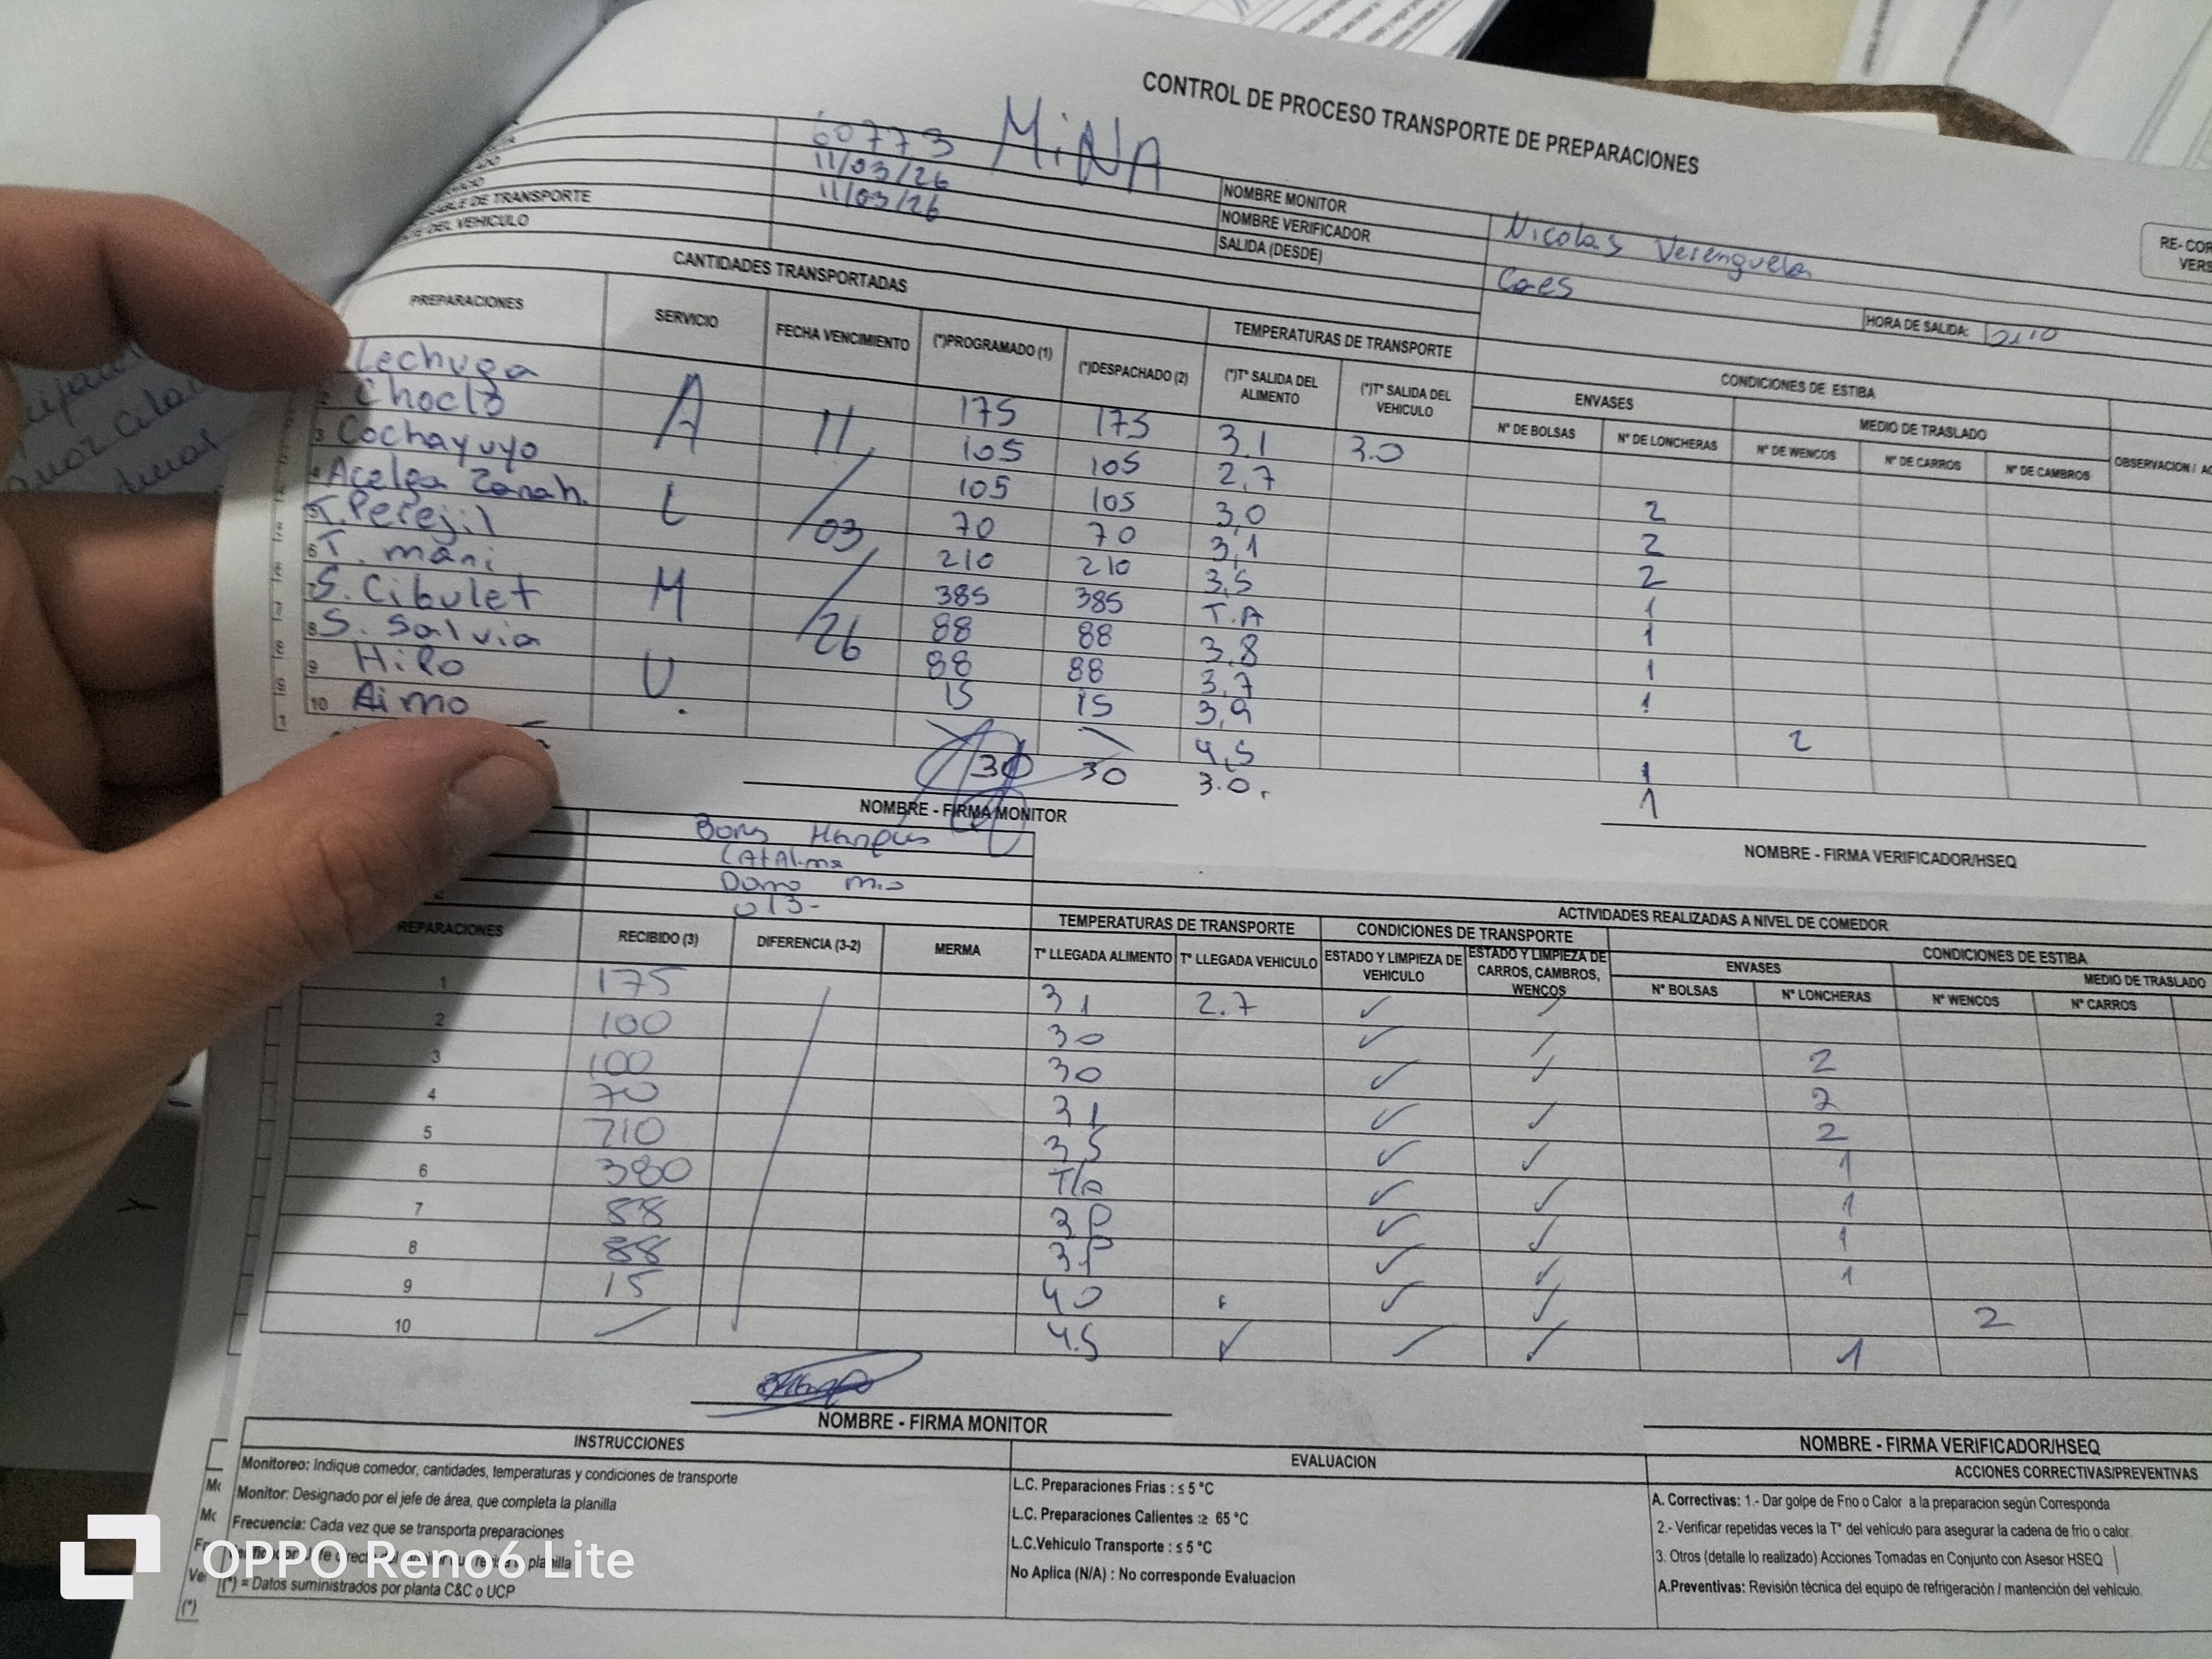 CONTROL DE PROCESO TRANSPORTE DE PREPARACIONES
60773 MiNA
11/03/26
11/03/26
DE TRANSPORTE
DEL VEHICULO
NOMBRE MONITOR
NOMBRE VERIFICADOR
SALIDA (DESDE)
Nicolas Verenguela
Caes
HORA DE SALIDA:
RE-COR
VERS
CANTIDADES TRANSPORTADAS
TEMPERATURAS DE TRANSPORTE
CONDICIONES DE ESTIBA
ENVASES MEDIO DE TRASLADO
PREPARACIONES SERVICIO FECHA VENCIMIENTO (*)PROGRAMADO (1) (*)DESPACHADO (2) (*)T° SALIDA DEL ALIMENTO (*)T° SALIDA DEL VEHICULO N° DE BOLSAS N° DE LONCHERAS N° DE WENCOS N° DE CARROS N° DE CAMBROS OBSERVACION / AC
Lechuga A 11/03/26 175 175 3.1 3.0 2
2 Choclo 105 105 2,7 2
3 Cochayuyo 105 105 3,0 2
4 Acelga Zanah. L 70 70 3,1 1
5 T. Perejil 210 210 3,5 1
6 T. mani 385 385 T.A 1
7 S. Cibulet M 88 88 3,8 1
8 S. Salvia 88 88 3,7
9 Hilo U. 15 15 3,9 2
10 Aimo 4,5 1
30 30 3.0. 1
NOMBRE - FIRMA MONITOR
NOMBRE - FIRMA VERIFICADOR/HSEQ
013-
ACTIVIDADES REALIZADAS A NIVEL DE COMEDOR
TEMPERATURAS DE TRANSPORTE CONDICIONES DE TRANSPORTE CONDICIONES DE ESTIBA
ENVASES MEDIO DE TRASLADO
REPARACIONES RECIBIDO (3) DIFERENCIA (3-2) MERMA T° LLEGADA ALIMENTO T° LLEGADA VEHICULO ESTADO Y LIMPIEZA DE VEHICULO ESTADO Y LIMPIEZA DE CARROS, CAMBROS, WENCOS N° BOLSAS N° LONCHERAS N° WENCOS N° CARROS
1 175 31 2.7 ✓ ✓ 2
2 100 30 ✓ ✓ 2
3 100 30 ✓ ✓ 2
4 70 31 ✓ ✓ 1
5 210 35 ✓ ✓ 1
6 380 T/A ✓ ✓ 1
7 88 ✓ ✓ 1
8 88 ✓ ✓
9 15 40 ✓ ✓ 2
10 4.5 ✓ ✓ 1
NOMBRE - FIRMA MONITOR
NOMBRE - FIRMA VERIFICADOR/HSEQ
INSTRUCCIONES
Monitoreo: Indique comedor, cantidades, temperaturas y condiciones de transporte
Monitor: Designado por el jefe de área, que completa la planilla
Frecuencia: Cada vez que se transporta preparaciones
planilla
(*) = Datos suministrados por planta C&C o UCP
EVALUACION
L.C. Preparaciones Frias : ≤ 5 °C
L.C. Preparaciones Calientes :≥ 65 °C
L.C.Vehiculo Transporte : ≤ 5 °C
No Aplica (N/A) : No corresponde Evaluacion
ACCIONES CORRECTIVAS/PREVENTIVAS
A. Correctivas: 1.- Dar golpe de Frio o Calor a la preparacion según Corresponda
2.- Verificar repetidas veces la T° del vehículo para asegurar la cadena de frio o calor.
3. Otros (detalle lo realizado) Acciones Tomadas en Conjunto con Asesor HSEQ
A.Preventivas: Revisión técnica del equipo de refrigeración / mantención del vehículo.
OPPO Reno6 Lite